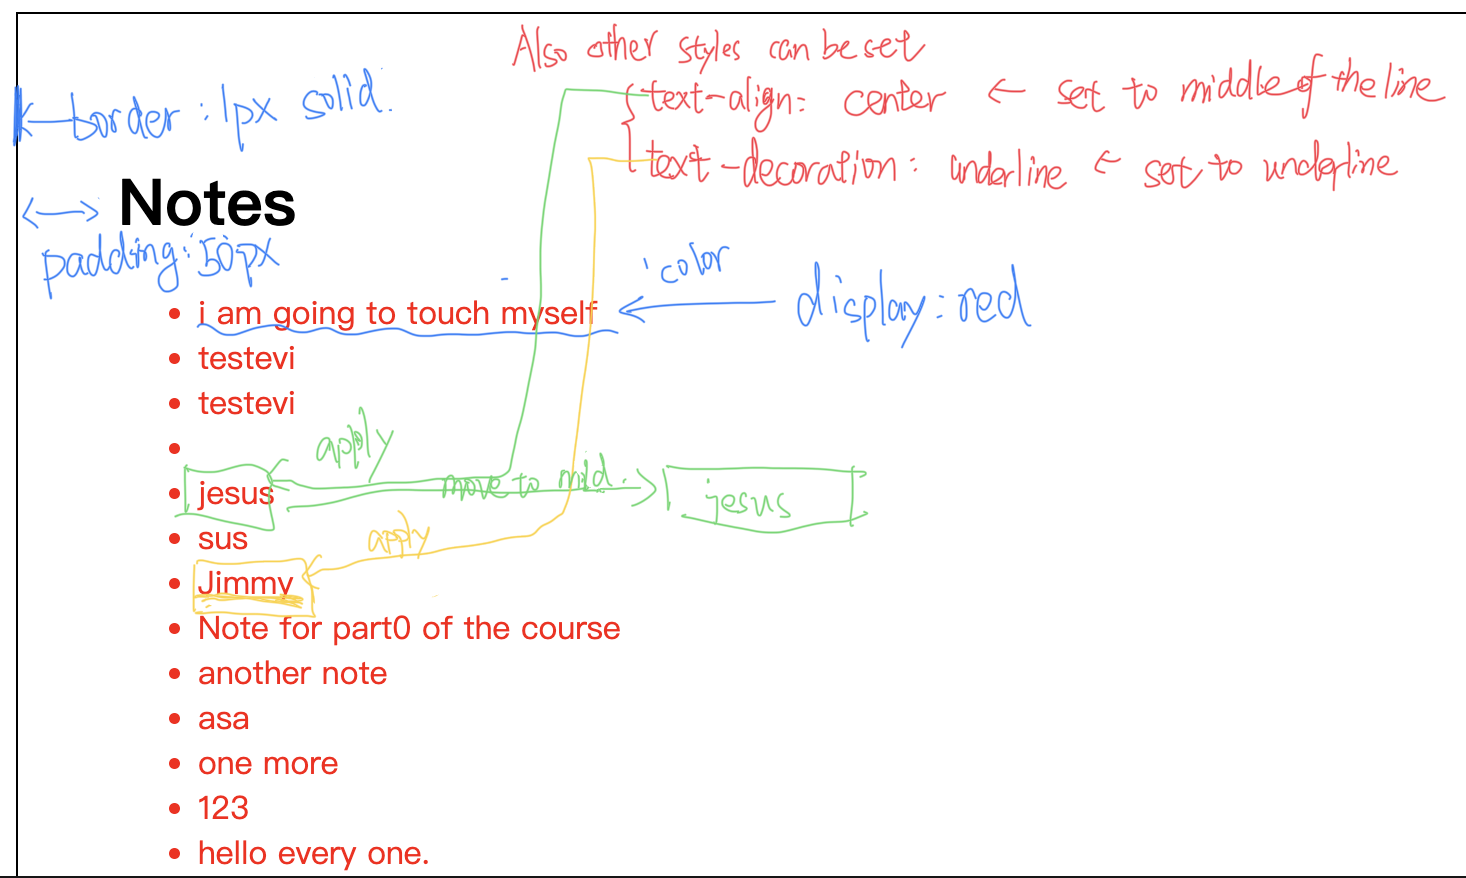 Also other styles can be set
text-align: center ← set to middle of the line
border: 1px solid.
text-decoration: underline ← set to underline
Notes
padding: 50px
color
display: red
i am going to touch myself
testevi
testevi
apply
move to mid.
jesus
jesus
sus
apply
Jimmy
Note for part0 of the course
another note
asa
one more
123
hello every one.